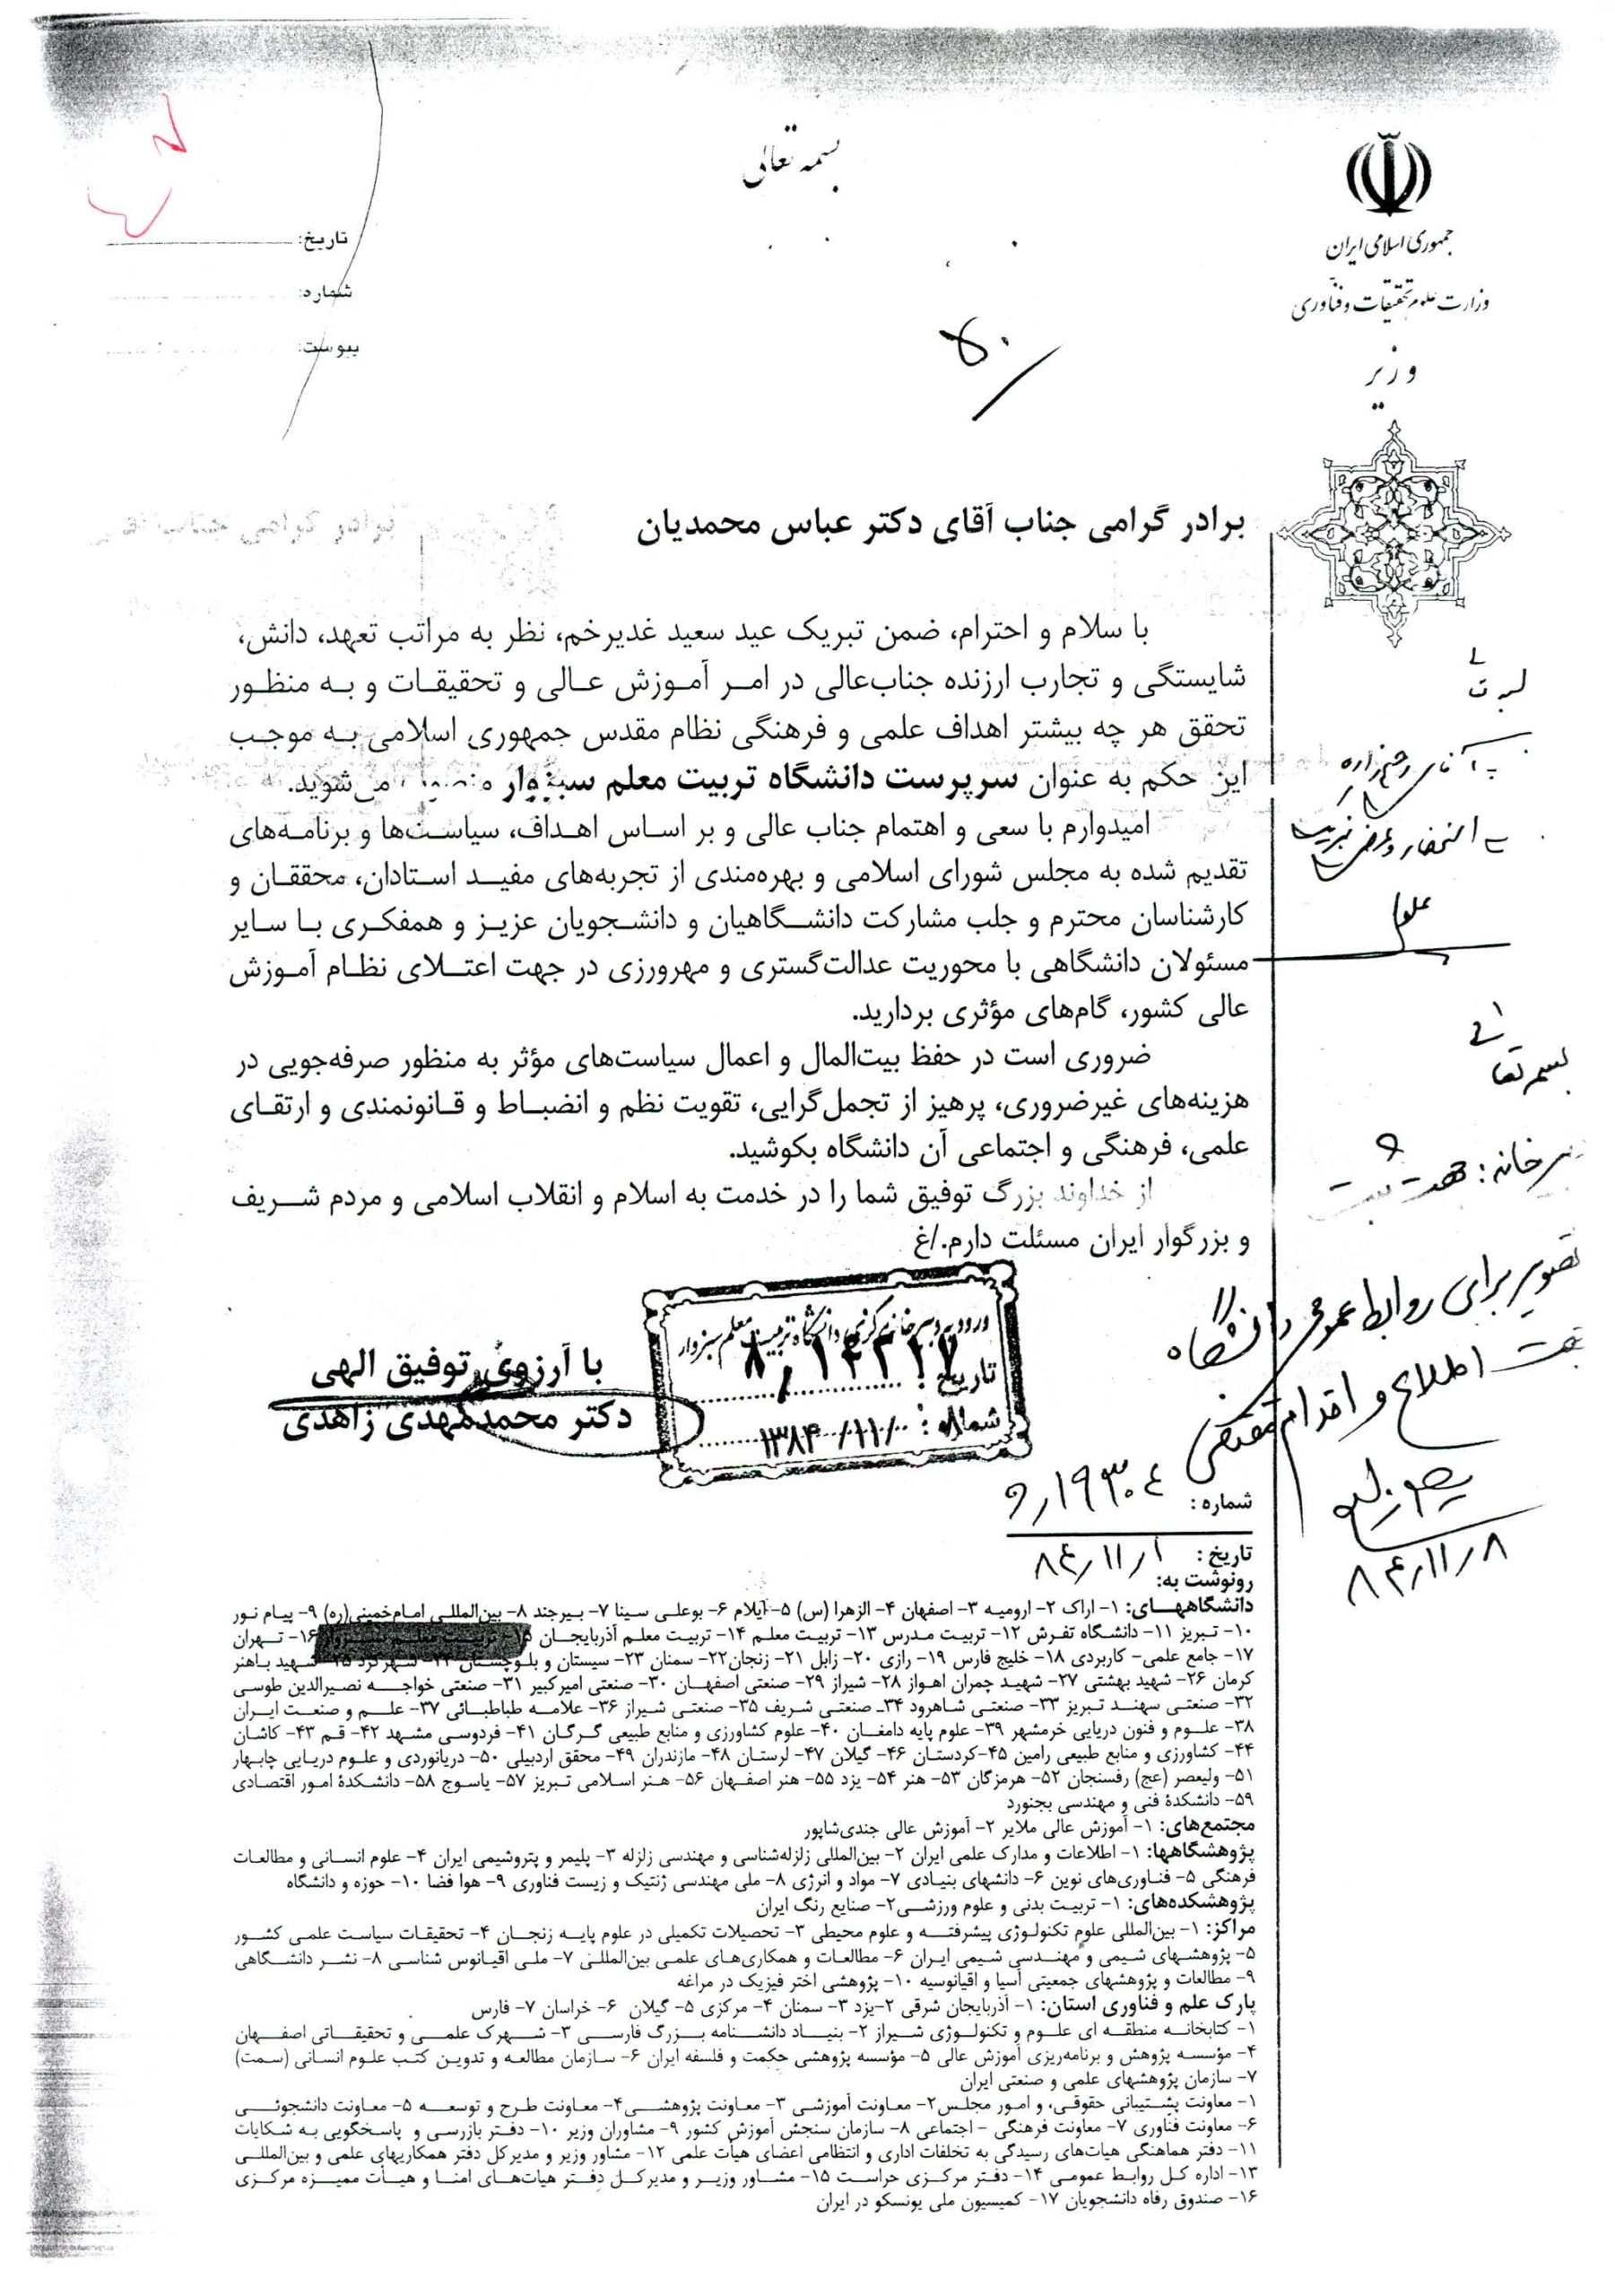 بسمه تعالی
جمهوری اسلامی ایران
وزارت علوم تحقیقات و فناوری
وزیر
تاریخ:
شماره:
پیوست:
برادر گرامی جناب آقای دکتر عباس محمدیان
با سلام و احترام، ضمن تبریک عید سعید غدیرخم، نظر به مراتب تعهد، دانش،
شایستگی و تجارب ارزنده جناب‌عالی در امر آموزش عالی و تحقیقات و به منظور
تحقق هر چه بیشتر اهداف علمی و فرهنگی نظام مقدس جمهوری اسلامی به موجب
این حکم به عنوان سرپرست دانشگاه تربیت معلم سبزوار منصوب می‌شوید.
امیدوارم با سعی و اهتمام جناب عالی و بر اساس اهداف، سیاست‌ها و برنامه‌های
تقدیم شده به مجلس شورای اسلامی و بهره‌مندی از تجربه‌های مفید استادان، محققان و
کارشناسان محترم و جلب مشارکت دانشگاهیان و دانشجویان عزیز و همفکری با سایر
مسئولان دانشگاهی با محوریت عدالت‌گستری و مهرورزی در جهت اعتلای نظام آموزش
عالی کشور، گام‌های مؤثری بردارید.
ضروری است در حفظ بیت‌المال و اعمال سیاست‌های مؤثر به منظور صرفه‌جویی در
هزینه‌های غیرضروری، پرهیز از تجمل‌گرایی، تقویت نظم و انضباط و قانونمندی و ارتقای
علمی، فرهنگی و اجتماعی آن دانشگاه بکوشید.
از خداوند بزرگ توفیق شما را در خدمت به اسلام و انقلاب اسلامی و مردم شریف
و بزرگوار ایران مسئلت دارم./غ
با آرزوی توفیق الهی
دکتر محمدمهدی زاهدی
ورود به دبیرخانه مرکزی دانشگاه تربیت معلم سبزوار
تاریخ:
شماره:
بسمه تعالی
دبیرخانه: جهت ثبت
تصویر برای روابط عمومی دانشگاه
جهت اطلاع و اقدام مقتضی
۸۴/۱۱/۸
شماره: ۱۹۳۰۴/و
تاریخ: ۸۴/۱۱/۱
رونوشت به:
دانشگاههای: ۱- اراک ۲- ارومیه ۳- اصفهان ۴- الزهرا (س) ۵- ایلام ۶- بوعلی سینا ۷- بیرجند ۸- بین‌المللی امام‌خمینی(ره) ۹- پیام نور
۱۰- تبریز ۱۱- دانشگاه تفرش ۱۲- تربیت مدرس ۱۳- تربیت معلم ۱۴- تربیت معلم آذربایجان ۱۵- تربیت معلم سبزوار ۱۶- تهران
۱۷- جامع علمی- کاربردی ۱۸- خلیج فارس ۱۹- رازی ۲۰- زابل ۲۱- زنجان ۲۲- سمنان ۲۳- سیستان و بلوچستان ۲۴- شهرکرد ۲۵- شهید باهنر
کرمان ۲۶- شهید بهشتی ۲۷- شهید چمران اهواز ۲۸- شیراز ۲۹- صنعتی اصفهان ۳۰- صنعتی امیرکبیر ۳۱- صنعتی خواجه نصیرالدین طوسی
۳۲- صنعتی سهند تبریز ۳۳- صنعتی شاهرود ۳۴- صنعتی شریف ۳۵- صنعتی شیراز ۳۶- علامه طباطبائی ۳۷- علم و صنعت ایران
۳۸- علوم و فنون دریایی خرمشهر ۳۹- علوم پایه دامغان ۴۰- علوم کشاورزی و منابع طبیعی گرگان ۴۱- فردوسی مشهد ۴۲- قم ۴۳- کاشان
۴۴- کشاورزی و منابع طبیعی رامین ۴۵- کردستان ۴۶- گیلان ۴۷- لرستان ۴۸- مازندران ۴۹- محقق اردبیلی ۵۰- دریانوردی و علوم دریایی چابهار
۵۱- ولیعصر (عج) رفسنجان ۵۲- هرمزگان ۵۳- هنر ۵۴- یزد ۵۵- هنر اصفهان ۵۶- هنر اسلامی تبریز ۵۷- یاسوج ۵۸- دانشکدۀ امور اقتصادی
۵۹- دانشکدۀ فنی و مهندسی بجنورد
مجتمع‌های: ۱- آموزش عالی ملایر ۲- آموزش عالی جندی‌شاپور
پژوهشگاهها: ۱- اطلاعات و مدارک علمی ایران ۲- بین‌المللی زلزله‌شناسی و مهندسی زلزله ۳- پلیمر و پتروشیمی ایران ۴- علوم انسانی و مطالعات
فرهنگی ۵- فناوری‌های نوین ۶- دانشهای بنیادی ۷- مواد و انرژی ۸- ملی مهندسی ژنتیک و زیست فناوری ۹- هوا فضا ۱۰- حوزه و دانشگاه
پژوهشکده‌های: ۱- تربیت بدنی و علوم ورزشی ۲- صنایع رنگ ایران
مراکز: ۱- بین‌المللی علوم تکنولوژی پیشرفته و علوم محیطی ۳- تحصیلات تکمیلی در علوم پایه زنجان ۴- تحقیقات سیاست علمی کشور
۵- پژوهشهای شیمی و مهندسی شیمی ایران ۶- مطالعات و همکاری‌های علمی بین‌المللی ۷- ملی اقیانوس شناسی ۸- نشر دانشگاهی
۹- مطالعات و پژوهشهای جمعیتی آسیا و اقیانوسیه ۱۰- پژوهشی اختر فیزیک در مراغه
پارک علم و فناوری استان: ۱- آذربایجان شرقی ۲- یزد ۳- سمنان ۴- مرکزی ۵- گیلان ۶- خراسان ۷- فارس
۱- کتابخانه منطقه ای علوم و تکنولوژی شیراز ۲- بنیاد دانشنامه بزرگ فارسی ۳- شهرک علمی و تحقیقاتی اصفهان
۴- مؤسسه پژوهش و برنامه‌ریزی آموزش عالی ۵- مؤسسه پژوهشی حکمت و فلسفه ایران ۶- سازمان مطالعه و تدوین کتب علوم انسانی (سمت)
۷- سازمان پژوهشهای علمی و صنعتی ایران
۱- معاونت پشتیبانی حقوقی، و امور مجلس ۲- معاونت آموزشی ۳- معاونت پژوهشی ۴- معاونت طرح و توسعه ۵- معاونت دانشجوئی
۶- معاونت فناوری ۷- معاونت فرهنگی - اجتماعی ۸- سازمان سنجش آموزش کشور ۹- مشاوران وزیر ۱۰- دفتر بازرسی و پاسخگویی به شکایات
۱۱- دفتر هماهنگی هیات‌های رسیدگی به تخلفات اداری و انتظامی اعضای هیأت علمی ۱۲- مشاور وزیر و مدیرکل دفتر همکاریهای علمی و بین‌المللی
۱۳- اداره کل روابط عمومی ۱۴- دفتر مرکزی حراست ۱۵- مشاور وزیر و مدیرکل دفتر هیات‌های امنا و هیأت ممیزه مرکزی
۱۶- صندوق رفاه دانشجویان ۱۷- کمیسیون ملی یونسکو در ایران